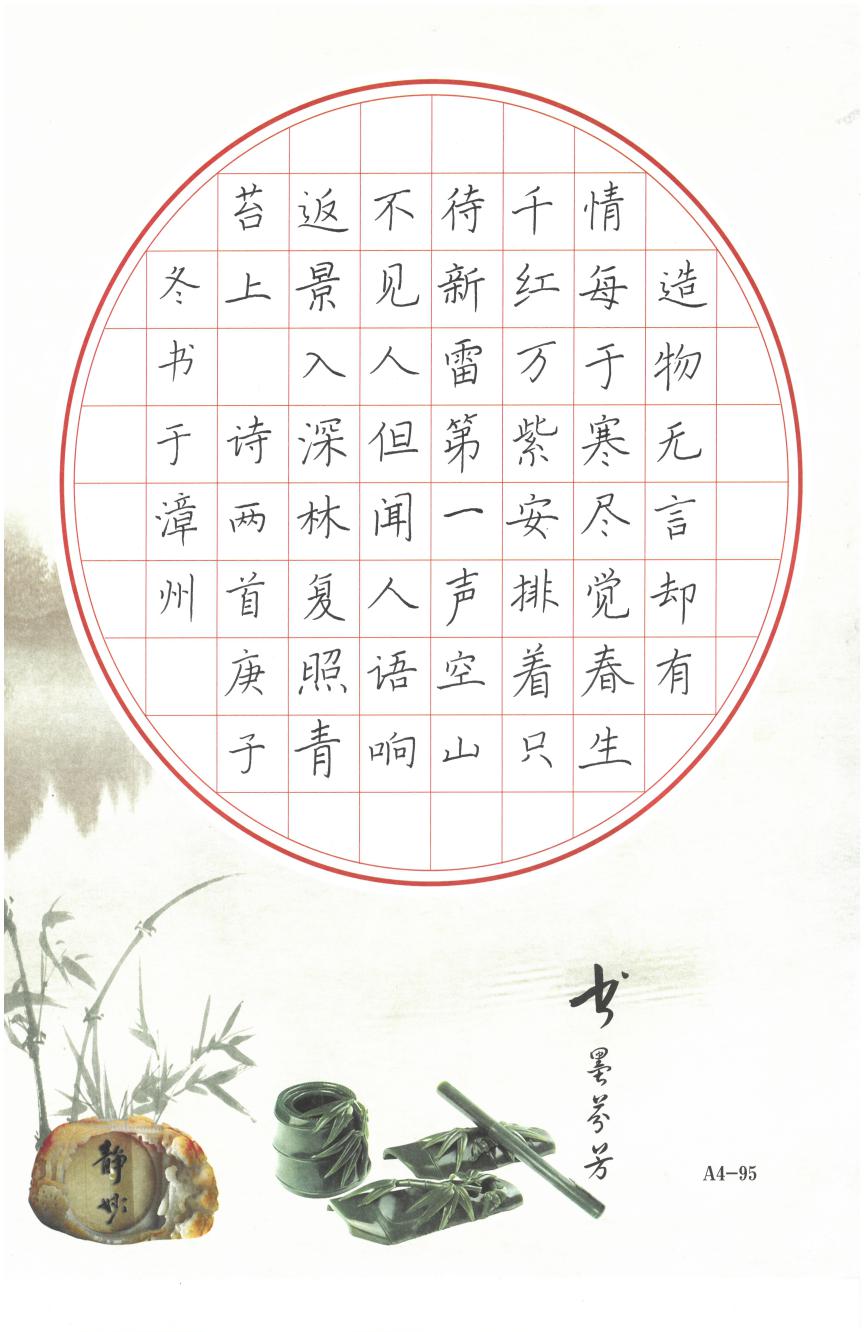 造物无言却有
情每于寒尽觉春生
千红万紫安排着只
待新雷第一声空山
不见人但闻人语响
返景入深林复照青
苔上 诗两首庚子
冬书于漳州
书墨芬芳
静妙
A4-95